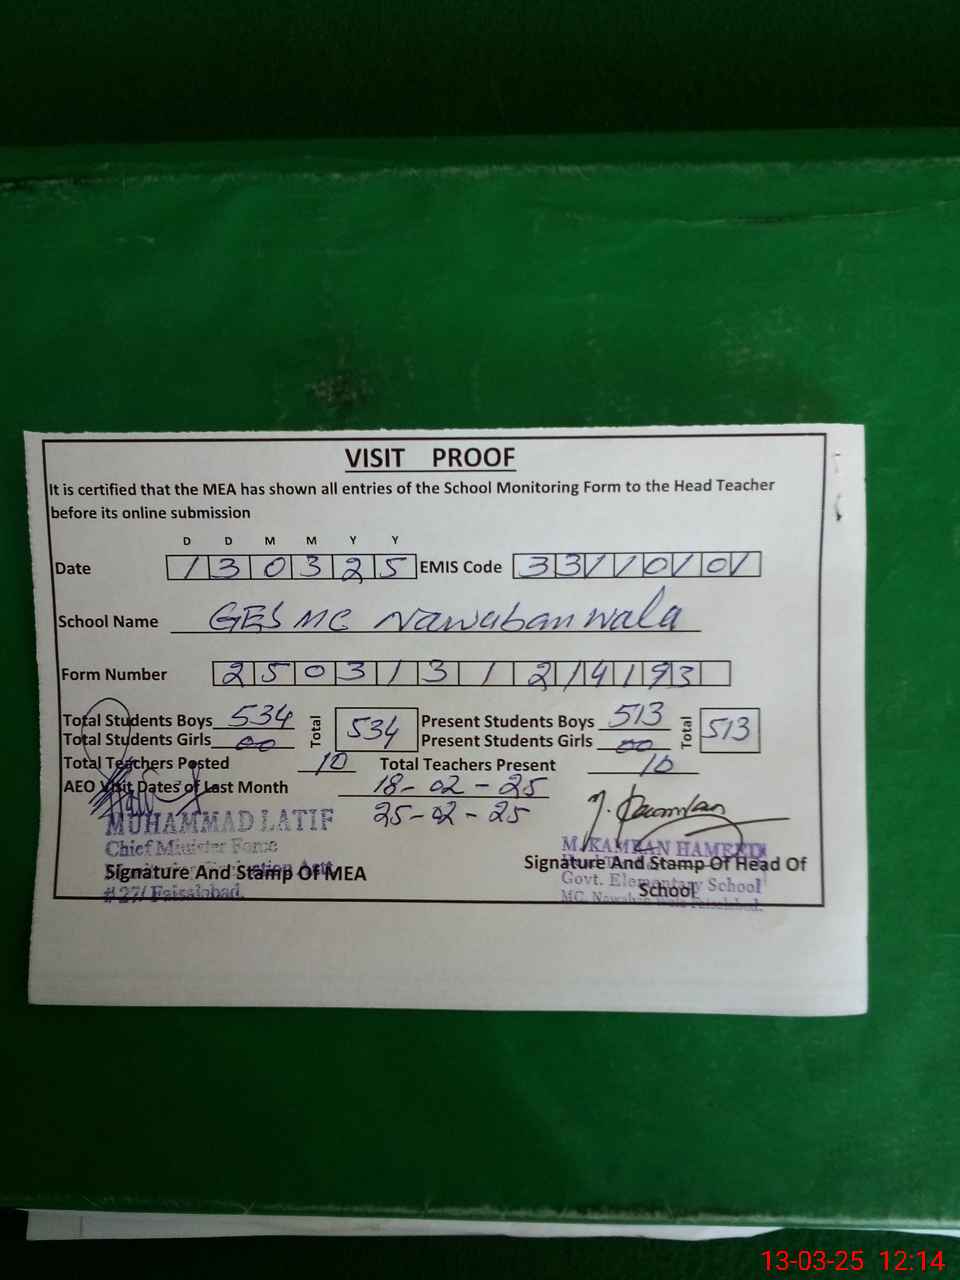 VISIT PROOF
It is certified that the MEA has shown all entries of the School Monitoring Form to the Head Teacher
before its online submission
D D M M Y Y
Date 1 3 0 3 2 5 EMIS Code 3 3 1 1 0 1 0 1
School Name GES MC Nawabanwala
Form Number 2 5 0 3 1 3 1 2 1 4 1 9 3
Total Students Boys 534 Total 534 Present Students Boys 513 Total 513
Total Students Girls 00 Present Students Girls 00
Total Teachers Posted 10 Total Teachers Present 10
AEO Visit Dates of Last Month 18-02-25
25-02-25
MUHAMMAD LATIF
Chief Minister Force
M. KAMRAN HAMEED
Signature And Stamp Of MEA
Signature And Stamp Of Head Of
School
# 27/ Faisalabad.
Govt. Elementary School
MC. Nawaban Wala Faisalabad.
13-03-25 12:14